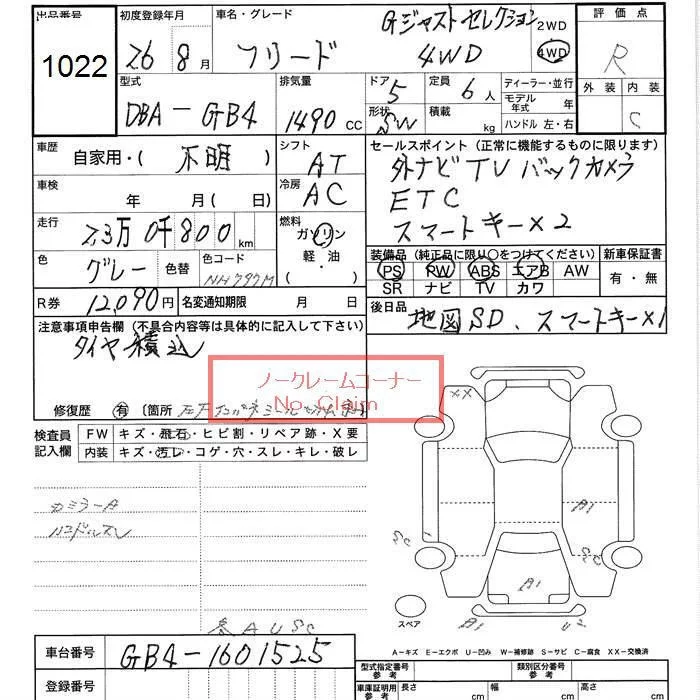 出品番号 初度登録年月 車名・グレード 評価点
Gジャスト セレクション 2WD
1022 26年 8月 フリード 4WD 4WD R
型式 排気量 ドア 定員 ディーラー・並行 外装 内装
DBA-GB4 1490cc 5 6人 モデル年式 年
形状 SW 積載 kg ハンドル 左・右 C
車歴 自家用・( 不明 ) シフト AT セールスポイント (正常に機能するものに限ります)
外ナビ TV バックカメラ
車検 年 月(日) 冷房 AC ETC
スマートキー×2
走行 km 燃料 ガソリン 軽・油
装備品 (純正品に限り○をつけてください) 新車保証書
PS PW ABS エアB AW 有・無
SR ナビ TV カワ
色 グレー 色替 色コード
R券 12,090円 名変通知期限 月 日 後日品 地図SD、スマートキー×1
注意事項申告欄 (不具合内容等は具体的に記入して下さい)
タイヤ積込
ノークレームコーナー
No Claim
修復歴 有 〔箇所
検査員記入欄 FW キズ・飛石・ヒビ割・リペア跡・X要
内装 キズ・汚レ・コゲ・穴・スレ・キレ・破レ
XX
カミラーA
A1
SC
SC
A1
スペア
A1
U2
A U S C
A-キズ E-エクボ U-凹み W-補修跡 S-サビ C-腐食 XX-交換済
車台番号 GB4-1601525
型式指定番号 参考 類別区分番号 参考
登録番号 車庫証明用 参考 長さ cm 幅 cm 高さ cm